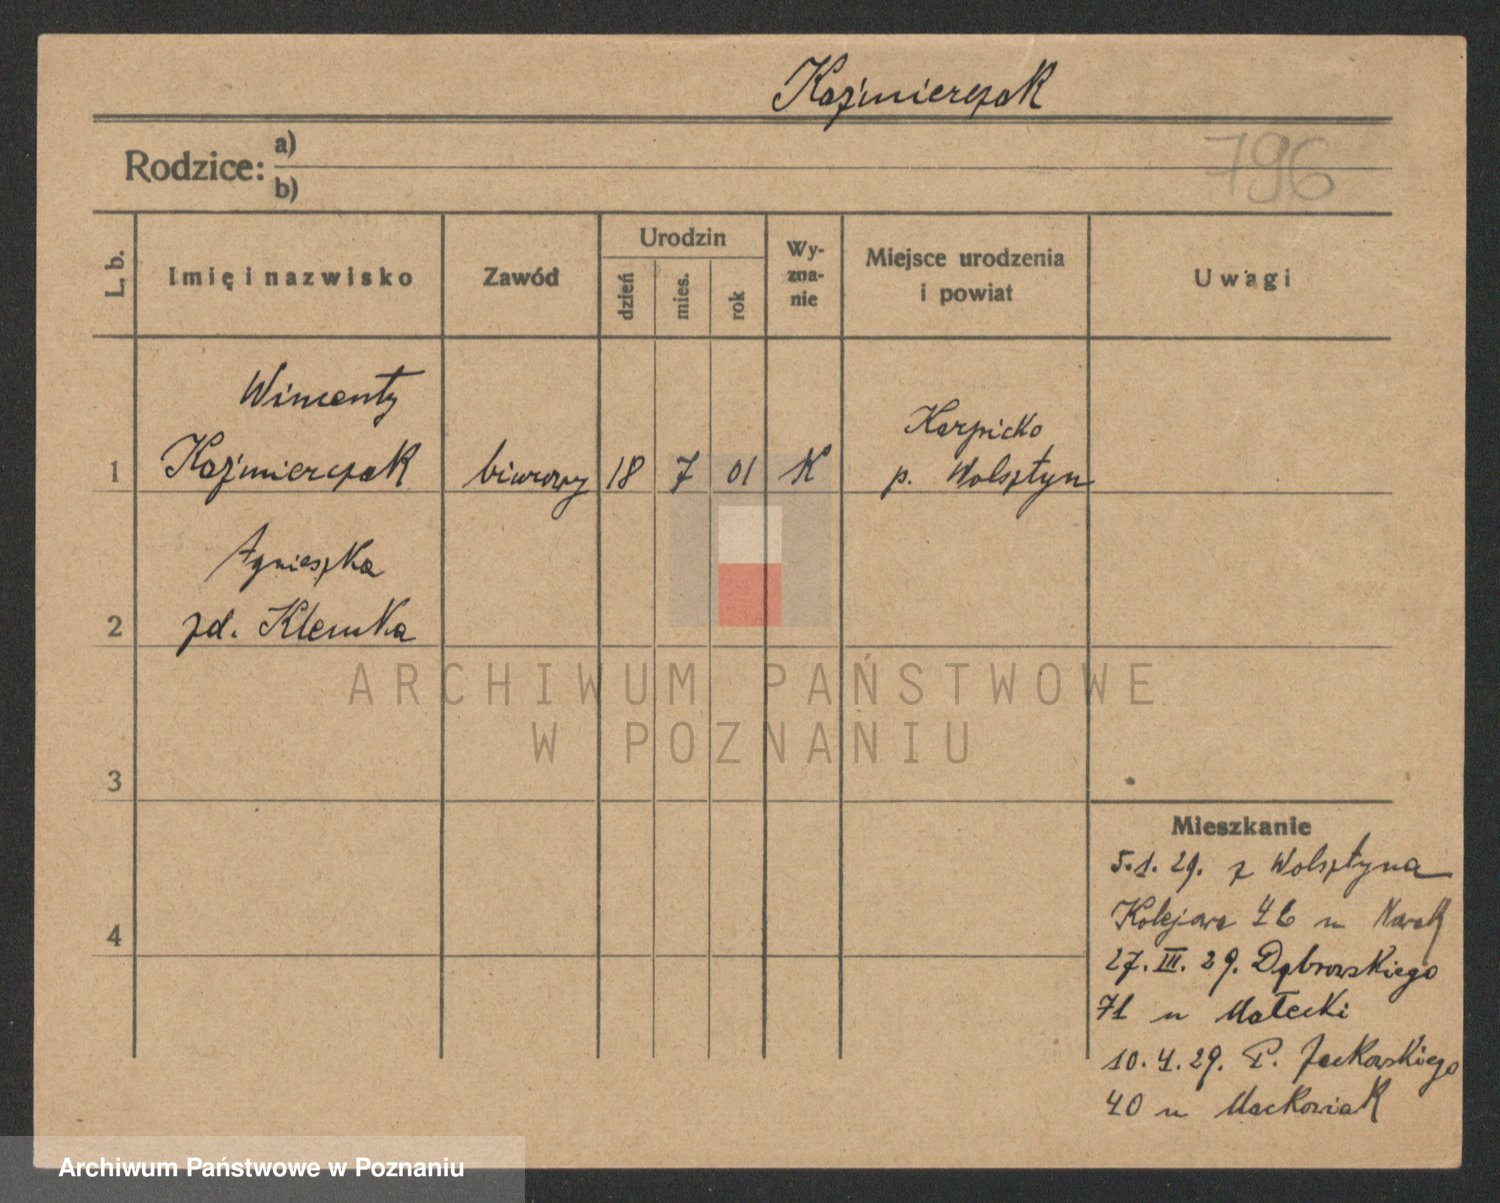 Kaźmierczak
796
Rodzice: a)
b)
L. b.
Imię i nazwisko
Zawód
Urodzin
dzień
mies.
rok
Wy-
zna-
nie
Miejsce urodzenia
i powiat
Uwagi
Wincenty
Karpicko
1 Kaźmierczak biurowy 18 7 01 K p. Wolsztyn
Agnieszka
2 zd. Klemka
ARCHIWUM PAŃSTWOWE
W POZNANIU
3
Mieszkanie
5.1.29. z Wolsztyna
Kolejowa 46 u Nawrk
4
27.III.29. Dąbrowskiego
71 u Małecki
10.4.29. P. Jackowskiego
40 u Maćkowiak
Archiwum Państwowe w Poznaniu